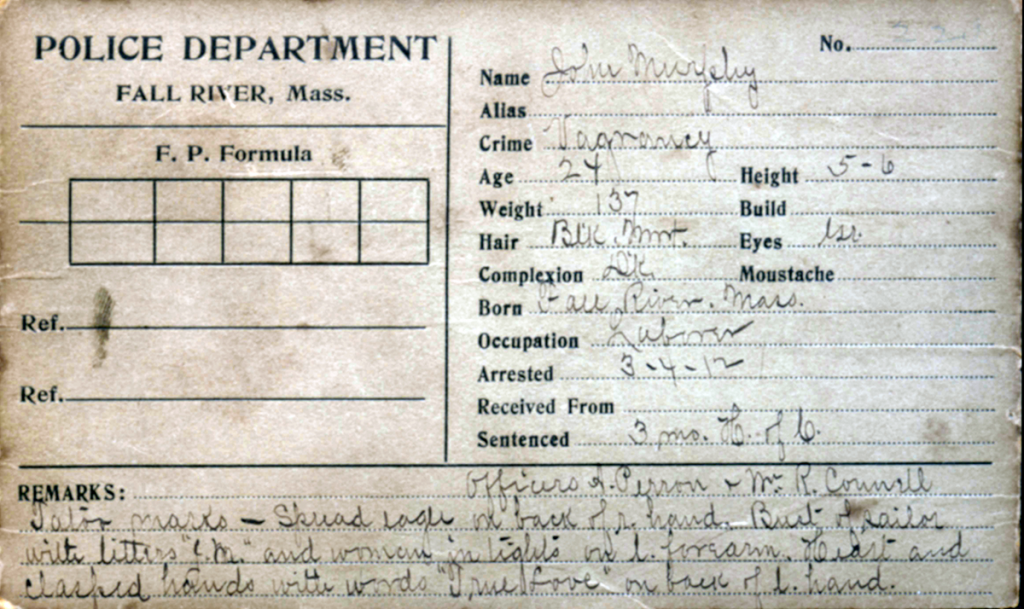 POLICE DEPARTMENT
FALL RIVER, Mass.
F. P. Formula
Ref.
Ref.
No.
Name John Murphy
Alias
Crime Vagrancy
Age 24 Height 5-6
Weight 137 Build
Hair Blk. Mm. Eyes br.
Complexion Dk. Moustache
Born Fall River. Mass.
Occupation Laborer
Arrested 3-4-12
Received From
Sentenced 3 mo. H. of C.
REMARKS: Officers A. Perron & Wm R. Connell
Tatoo marks - Spread eagle on back of r. hand. Bust of sailor
with letters "J.M." and woman in tights on l. forearm. Heart and
clasped hands with words "True Love" on back of l. hand.